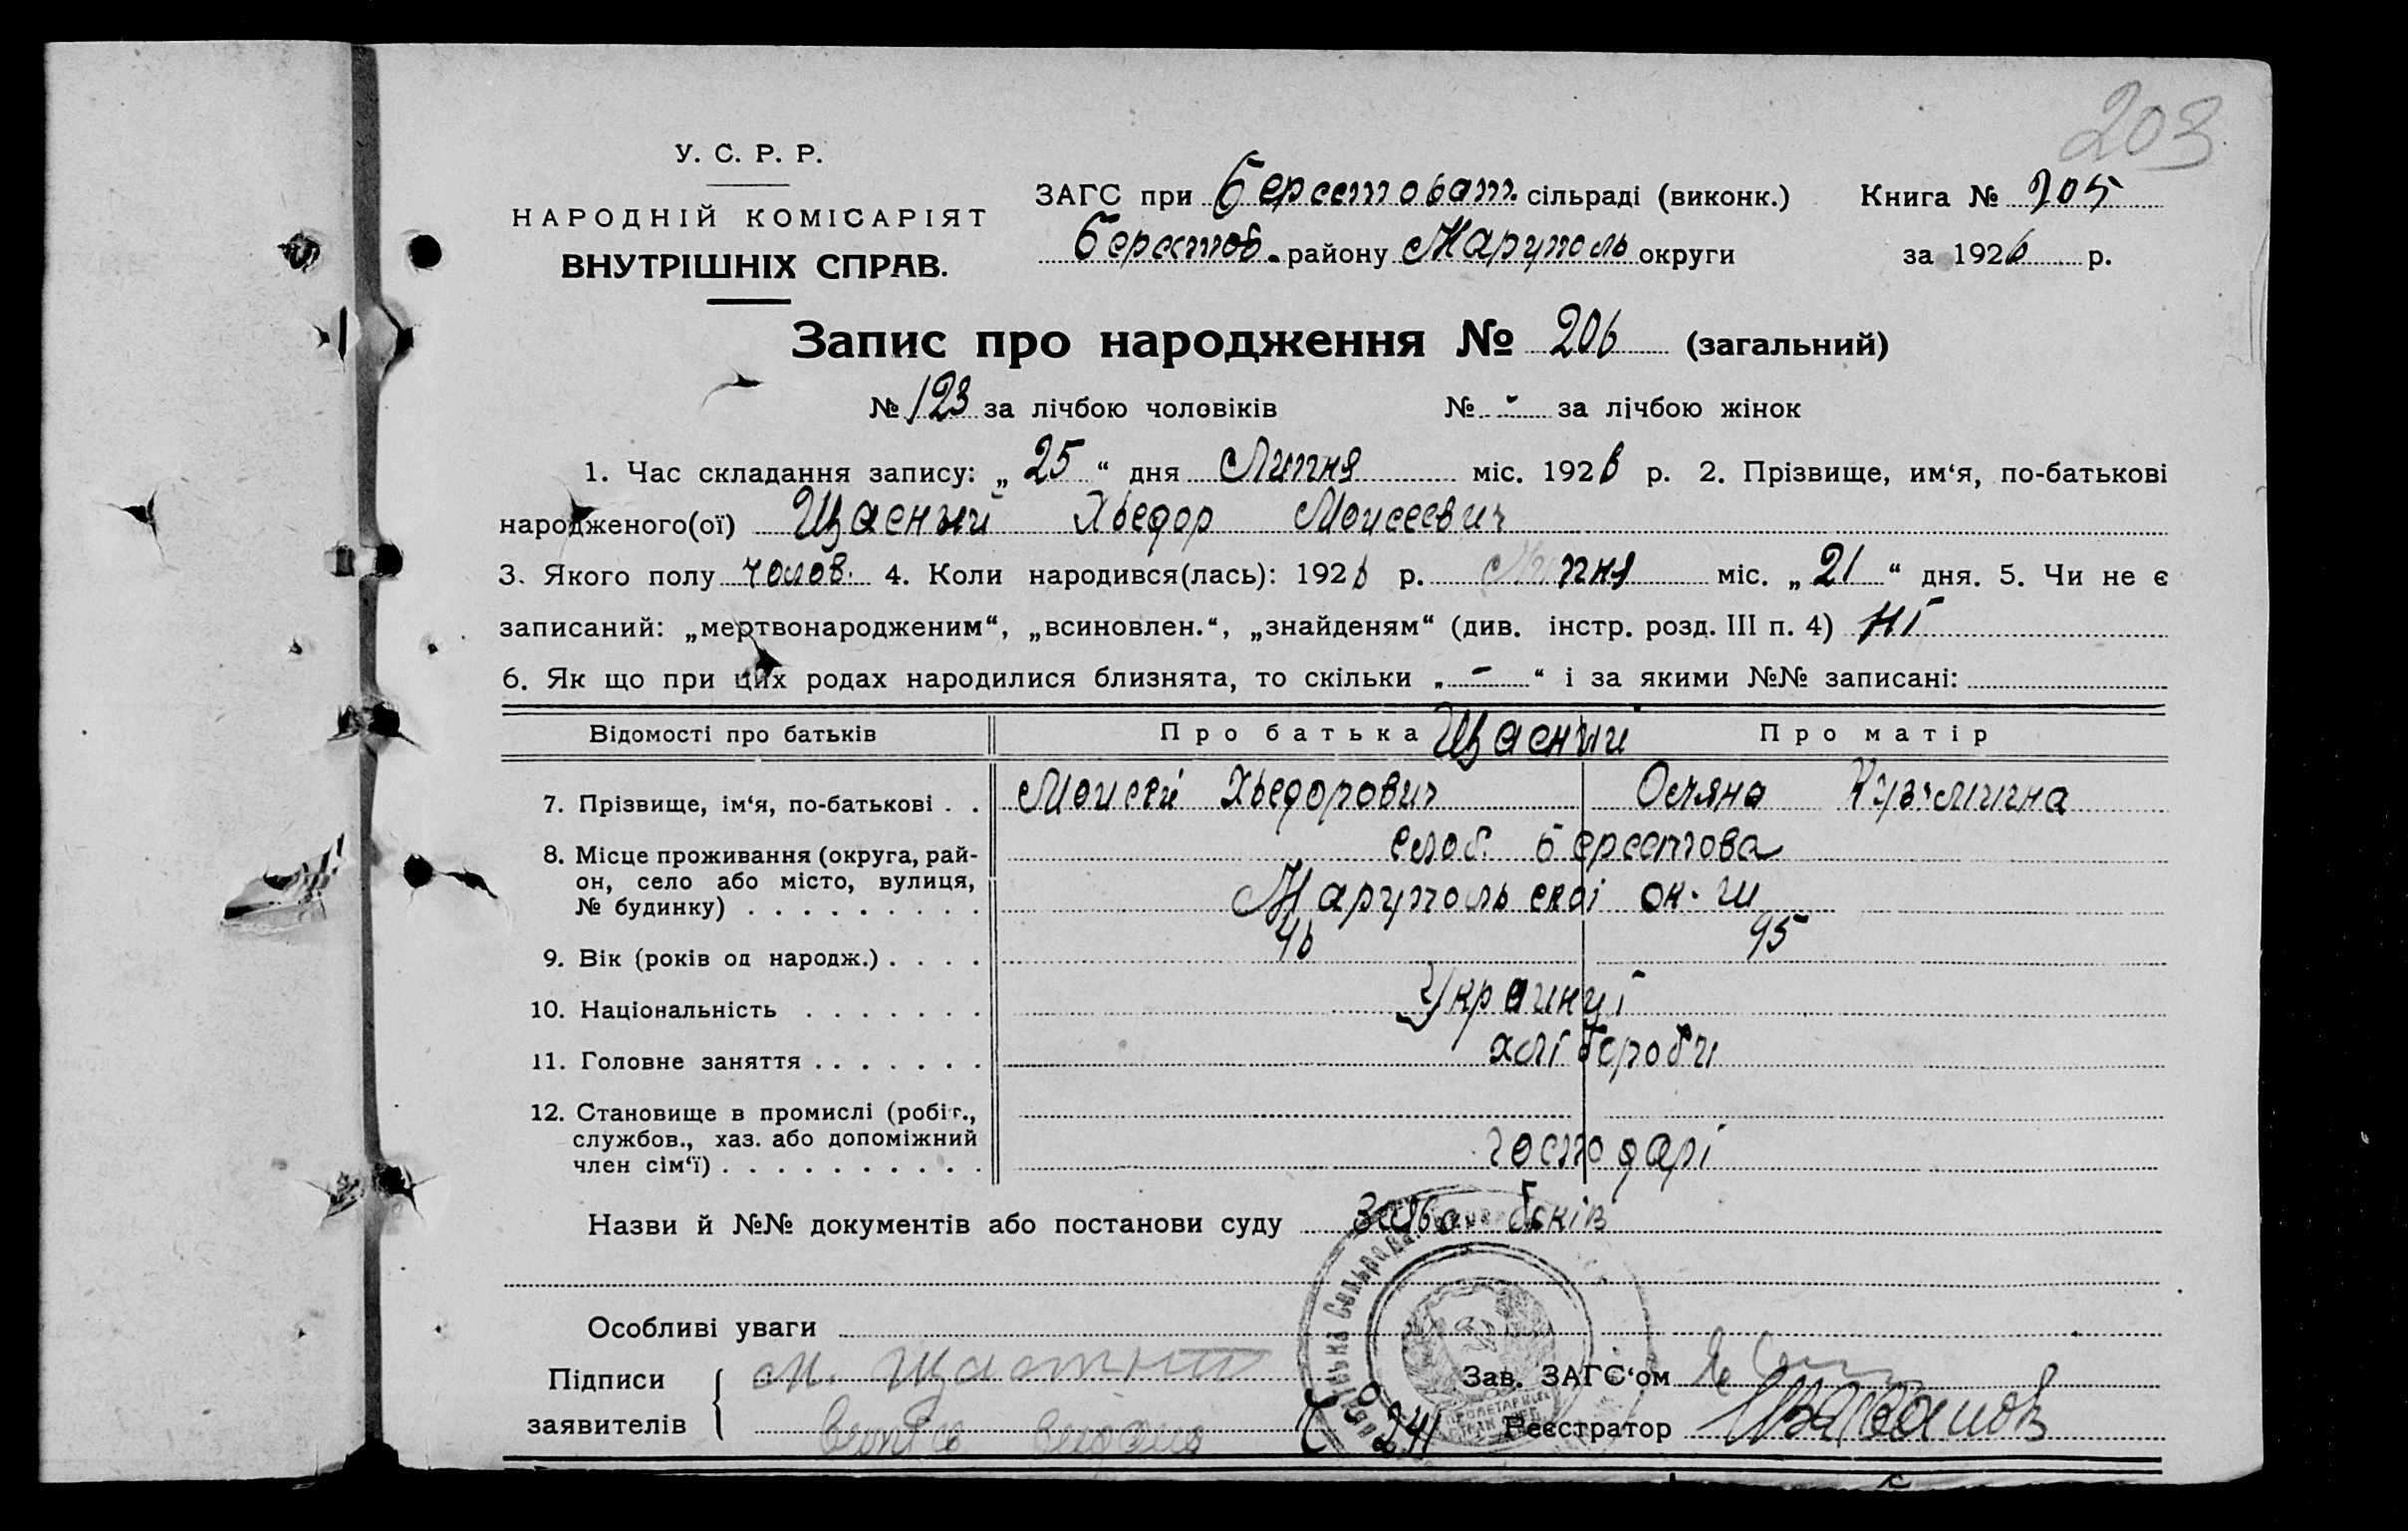 203
У. С. Р. Р.
НАРОДНІЙ КОМІСАРІЯТ
ВНУТРІШНІХ СПРАВ.
ЗАГС при Берестоват. сільраді (виконк.) Книга № 205
Берестов. району Маруполь округи за 1926 р.
Запис про народження № 206 (загальний)
№ 123 за лічбою чоловіків № - за лічбою жінок
1. Час складання запису: „ 25 “ дня Липня міс. 1926 р. 2. Прізвище, им‘я, по-батькові
народженого(ої) Щасний Хведор Моисеевич
3. Якого полу чолов. 4. Коли народився(лась): 1926 р. Липня міс. „ 21 “ дня. 5. Чи не є
записаний: „мертвонародженим“, „всиновлен.“, „знайденям“ (див. інстр. розд. III п. 4) Ні
6. Як що при цих родах народилися близнята, то скільки „ - “ і за якими №№ записані:
Відомості про батьків Про батька Щасний Про матір
7. Прізвище, ім‘я, по-батькові . . Моисей Хведорович Ояна Кузьминична
8. Місце проживання (округа, рай- слоб. Берестова
он, село або місто, вулиця, Марупольскоі ок.
№ будинку) . . . . . . . . .
9. Вік (років од народж.) . . . . 46 45
10. Національність . . . . . . . Украинці
11. Головне заняття . . . . . . . хліборобы
12. Становище в промислі (робіт.,
службов., хаз. або допоміжний
член сім‘ї) . . . . . . . . . . . господарі
Назви й №№ документів або постанови суду
Особливі уваги
Підписи М. Щастни Зав. ЗАГС‘ом
заявителів 241 Реєстратор